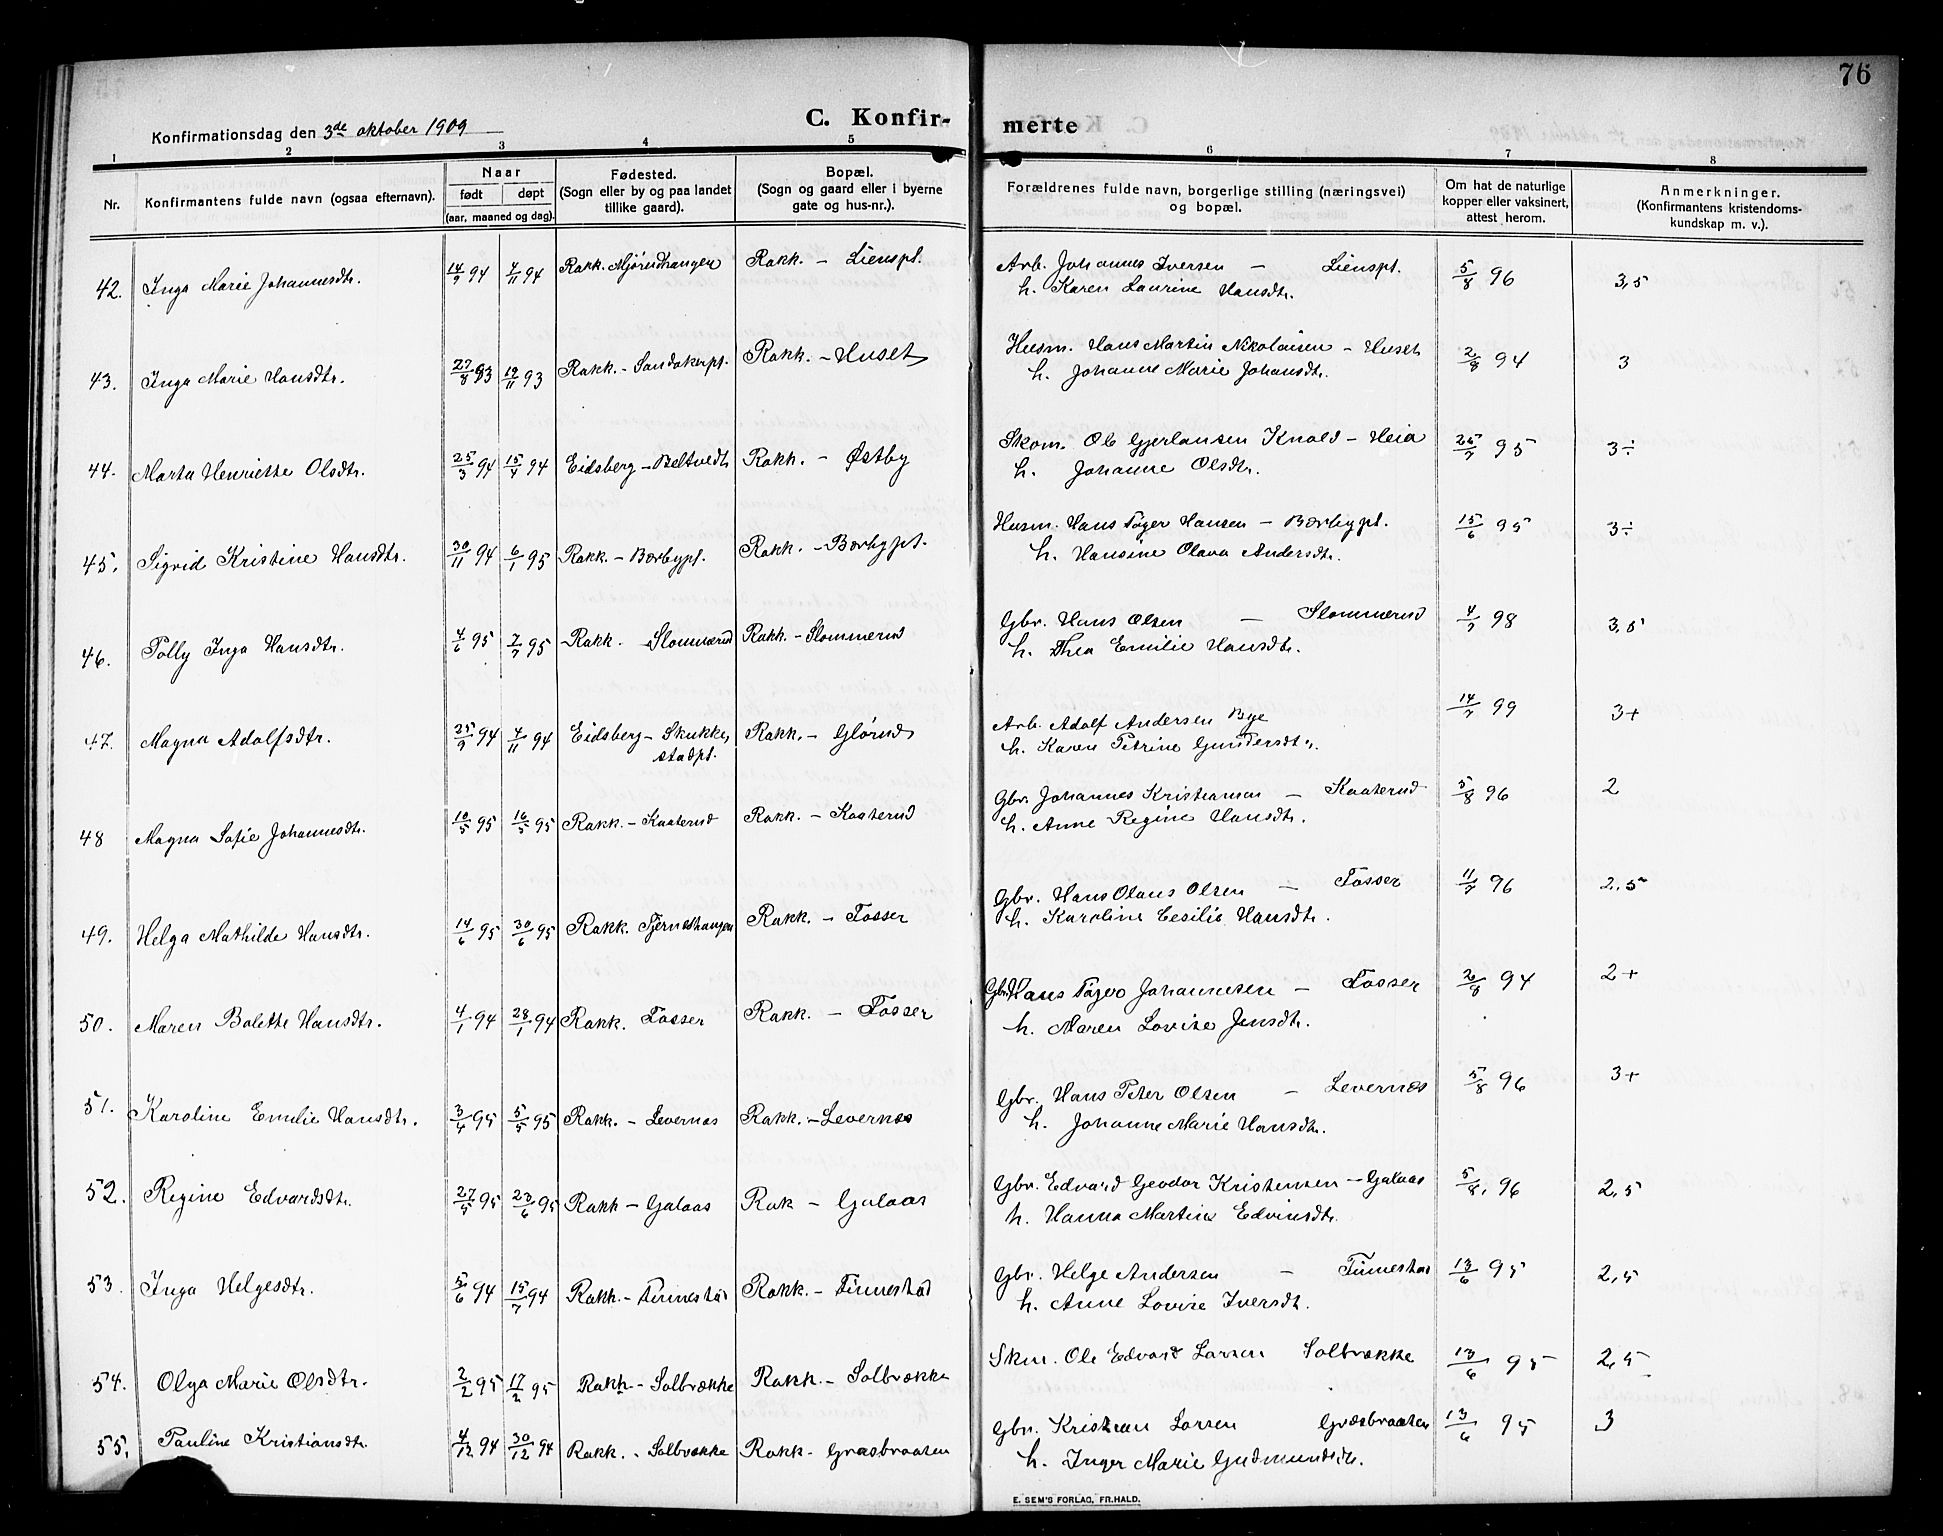 76
C. Konfir- merte
Konfirmationsdag den 3de oktober 1909
1 2 3 4 5 6 7 8
Nr. Konfirmantens fulde navn (ogsaa efternavn). Naar født døpt (aar, maaned og dag). Fødested. (Sogn eller by og paa landet tillike gaard). Bopæl. (Sogn og gaard eller i byerne gate og hus-nr.). Forældrenes fulde navn, borgerlige stilling (næringsvei) og bopæl. Om hat de naturlige kopper eller vaksinert, attest herom. Anmerkninger. (Konfirmantens kristendoms-kundskap m. v.).
42. Inga Marie Johannesdtr. 14/9 94 4/11 94 Rakk. Mjørudhaugen Rakk. – Lienspl. Arb. Johannes Iversen – Lienspl. 5/8 96 3,5
h. Karen Laurine Hansdtr.
43. Inga Marie Hansdtr. 27/8 93 19/11 93 Rakk. – Sandakerpl. Rakk. – Huset Husm. Hans Martin Nikolaisen – Huset 2/8 94 3
h. Johanne Marie Johansdtr.
44. Marta Henriette Olsdtr. 25/3 94 15/4 94 Eidsberg – Beltvedt Rakk. – Østby Skom. Ole Gjerlausen Knold – Heia 25/7 95 3÷
h. Johanne Olsdtr.
45. Sigrid Kristine Hansdtr. 30/11 94 6/1 95 Rakk. – Bærbypl. Rakk. – Bærbypl. Husm. Hans Tøger Hansen – Bærbypl. 15/6 95 3÷
h. Hansine Olava Andersdtr.
46. Polly Inga Hansdtr. 4/6 95 7/7 95 Rakk. – Slommerud Rakk. – Slommerud Gbr. Hans Olsen – Slommerud 4/7 98 3,5
h. Thea Emilie Hansdtr.
47. Magna Adolfsdtr. 25/9 94 4/11 94 Eidsberg – Skukke, Rakk. – Glørud Arb. Adolf Andersen Bye 14/7 99 3+
stadpl. h. Karen Petrine Gundersdtr.
48 Magna Sofie Johannesdtr. 10/5 95 16/5 95 Rakk. – Kaaterud Rakk. – Kaaterud Gbr. Johannes Kristiansen – Kaaterud 5/8 96 2
h. Anne Regine Hansdtr.
49. Helga Mathilde Hansdtr. 14/6 95 30/6 95 Rakk. Tjerneshaugen Rakk. – Fosser Gbr. Hans Olaus Olsen – Fosser 11/7 96 2,5
h. Karoline Cesilie Hansdtr.
50. Maren Bolette Hansdtr. 4/1 94 28/1 94 Rakk. Fosser Rakk. – Fosser Gbr. Hans Tøger Johannesen – Fosser 2/8 94 2+
h. Maren Lovise Jensdtr.
51. Karoline Emilie Hansdtr. 3/4 95 5/5 95 Rakk. – Levernæs Rakk. – Levernæs Gbr. Hans Peter Olsen – Levernæs 5/8 96 3+
h. Johanne Marie Hansdtr.
52. Regine Edvardsdtr. 27/5 95 23/6 95 Rakk – Galaas Rak – Galaas Gbr. Edvard Geodor Kristensen – Galaas 5/8. 96 2,5
h. Hanna Martine Edvinsdtr.
53. Inga Helgesdtr. 5/6 94 15/7 94 Rakk. – Finnestad Rakk. – Finnestad Gbr. Helge Andersen – Finnestad 13/6 95 2,5
h. Anne Lovise Iversdt.
54. Olga Marie Olsdtr. 2/2 95 17/2 95 Rakk. – Solbrække Rakk. – Solbrække Skm. Ole Edvard Larsen Solbrække 13/6 95 2,5
55. Pauline Kristiansdtr. 4/12 94 30/12 94 Rakk. – Solbrække Rakk – Græsbraaten Gbr. Kristian Larsen Græsbraaten 13/6 95 3
h. Inger Marie Gudmundsdtr.
E. SEM'S FORLAG, FR.HALD.